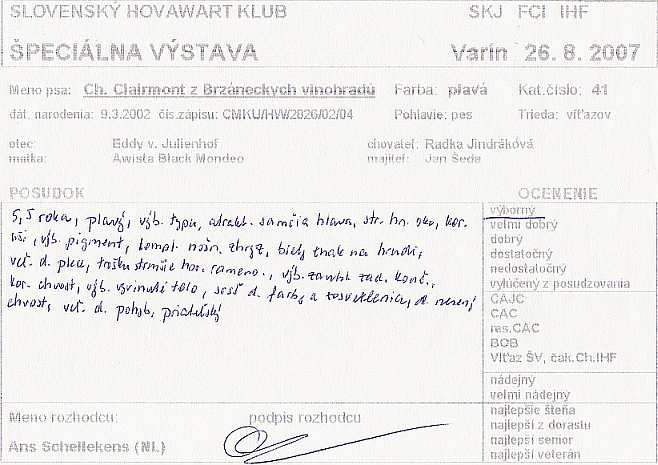 SLOVENSKÝ HOVAWART KLUB SKJ FCI IHF
ŠPECIÁLNA VÝSTAVA Varín 26. 8. 2007
Meno psa: Ch. Clairmont z Brzáneckych vinohradu Farba: plavá Kat.číslo: 41
dát. narodenia: 9.3.2002 čís.zápisu: CMKU/HW/2826/02/04 Pohlavie: pes Trieda: víťazov
otec: Eddy v. Julienhof chovateľ: Radka Jindráková
matka: Awista Black Mondeo majiteľ: Jan Šeda
POSUDOK OCENENIE
5,5 roka, plavý, výb. typu, atrakt. samčia hlava, str. hn. oko, kor.
uši, výb. pigment, kompl. nožn. zhryz, biely znak na hrudi,
veľ. d. plec, trošku strmšie hor. rameno., výb. zad. konč.,
kor. chvost, výb. vyvinuté telo, srsť d. farby a d. nesený
chvost, veľ. d. pohyb, priateľský
výborný
veľmi dobrý
dobrý
dostatočný
nedostatočný
vylúčený z posudzovania
CAJC
CAC
res.CAC
BOB
Víťaz ŠV, čak.Ch.IHF
nádejný
veľmi nádejný
najlepšie šteňa
najlepší z dorastu
najlepší senior
najlepší veterán
Meno rozhodcu: podpis rozhodcu
Ans Schellekens (NL)